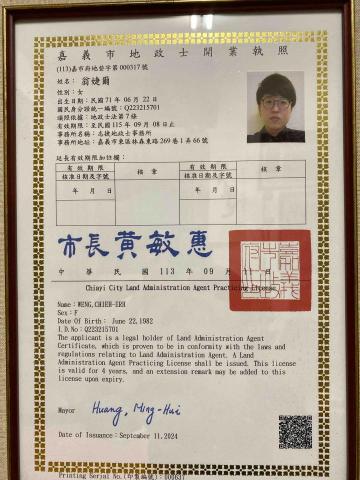 嘉義市地政士開業執照
(113)嘉市府地登字第000317號
姓名：翁婕爾
性別：女
出生日期：民國71年06月22日
國民身分證統一編號：Q223215701
議照依據：地政士法第7條
有效期限：至民國115年09月08日止
事務所名稱：志捷地政士事務所
事務所地址：嘉義市東區林森東路269巷1弄66號
延長有效期限加註欄：
有效期限 核准日期及字號 核章 有效期限 核准日期及字號 核章
年 月 日 年 月 日
市長黃敏惠
中華民國113年09月11日
Chiayi City Land Administration Agent Practicing License
Name：WENG,CHIEH-ERH
Sex：F
Date Of Birth： June 22,1982
I.D.No：Q223215701
The applicant is a legal holder of Land Administration Agent
Certificate, which is proved to be in conformity with the laws and
regulations relating to Land Administration Agent. A Land
Administration Agent Practicing License shall be issued. This license
is valid for 4 years, and an extension remark may be added to this
license upon expiry.
Mayor Huang, Ming-Hui
Date of Issuance：September 11,2024
Printing Serial No.(印製編號)：000637